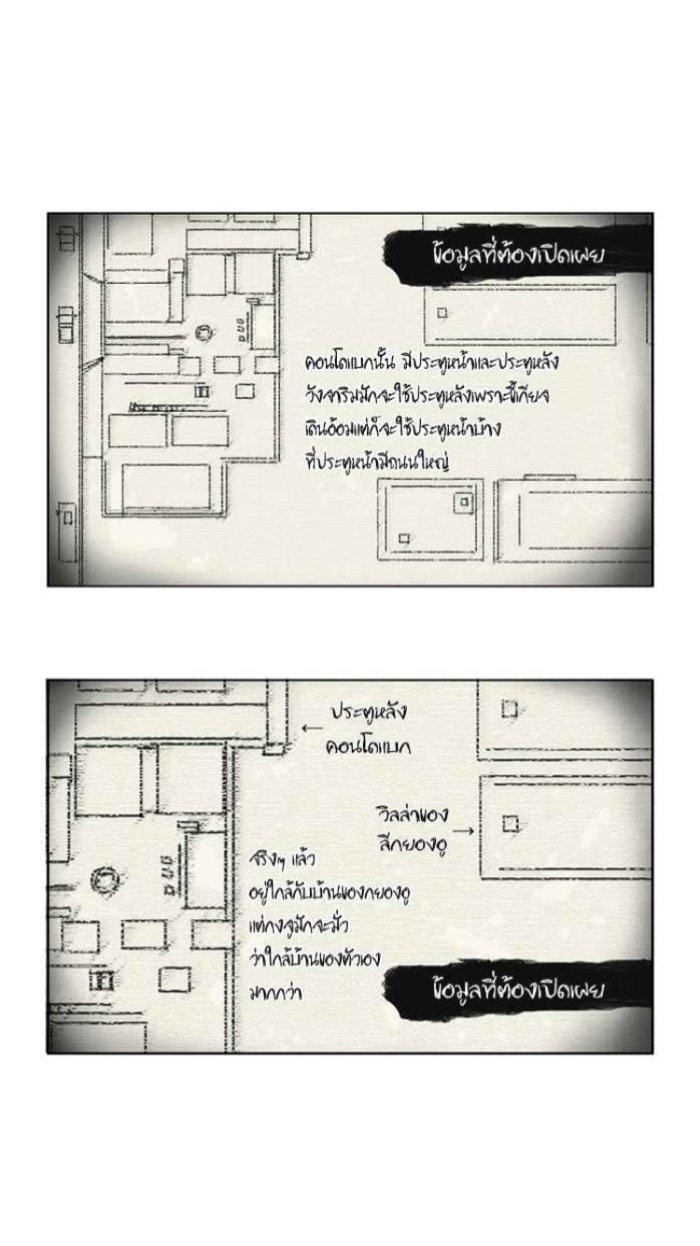 ข้อมูลที่ต้องเปิดเผย
คอนโดแบกนั้น มีประตูหน้าและประตูหลัง
วังจาริมมักจะใช้ประตูหลังเพราะขี้เกียจ
เดินอ้อมแต่ก็จะใช้ประตูหน้าบ้าง
ที่ประตูหน้ามีถนนใหญ่
ประตูหลัง
คอนโดแบก
วิลล่าของ
ลีกยองอู
จริงๆ แล้ว
อยู่ใกล้กับบ้านของกยองอู
แต่กงจูมักจะมั่ว
ว่าใกล้บ้านของตัวเอง
มากกว่า
ข้อมูลที่ต้องเปิดเผย